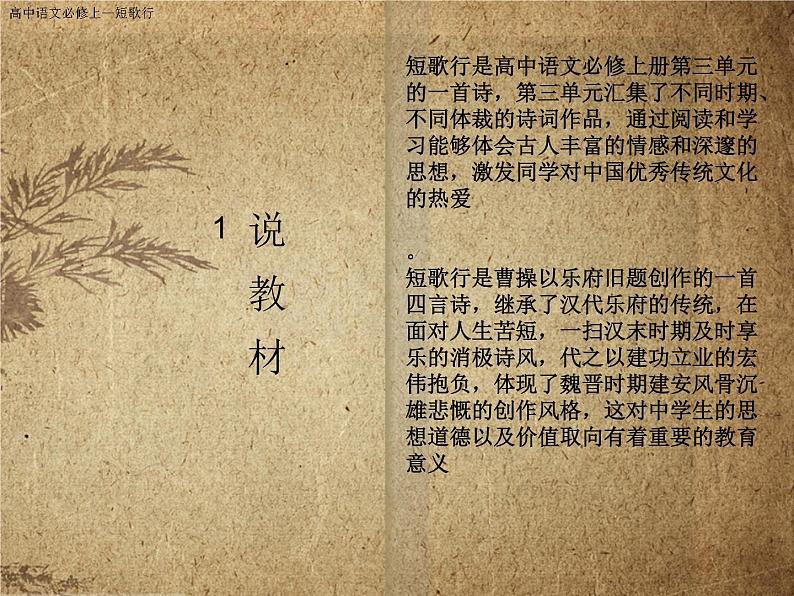 高中语文必修上—短歌行
1
说
教
材
短歌行是高中语文必修上册第三单元
的一首诗，第三单元汇集了不同时期、
不同体裁的诗词作品，通过阅读和学
习能够体会古人丰富的情感和深邃的
思想，激发同学对中国优秀传统文化
的热爱
。
短歌行是曹操以乐府旧题创作的一首
四言诗，继承了汉代乐府的传统，在
面对人生苦短，一扫汉末时期及时享
乐的消极诗风，代之以建功立业的宏
伟抱负，体现了魏晋时期建安风骨沉
雄悲慨的创作风格，这对中学生的思
想道德以及价值取向有着重要的教育
意义